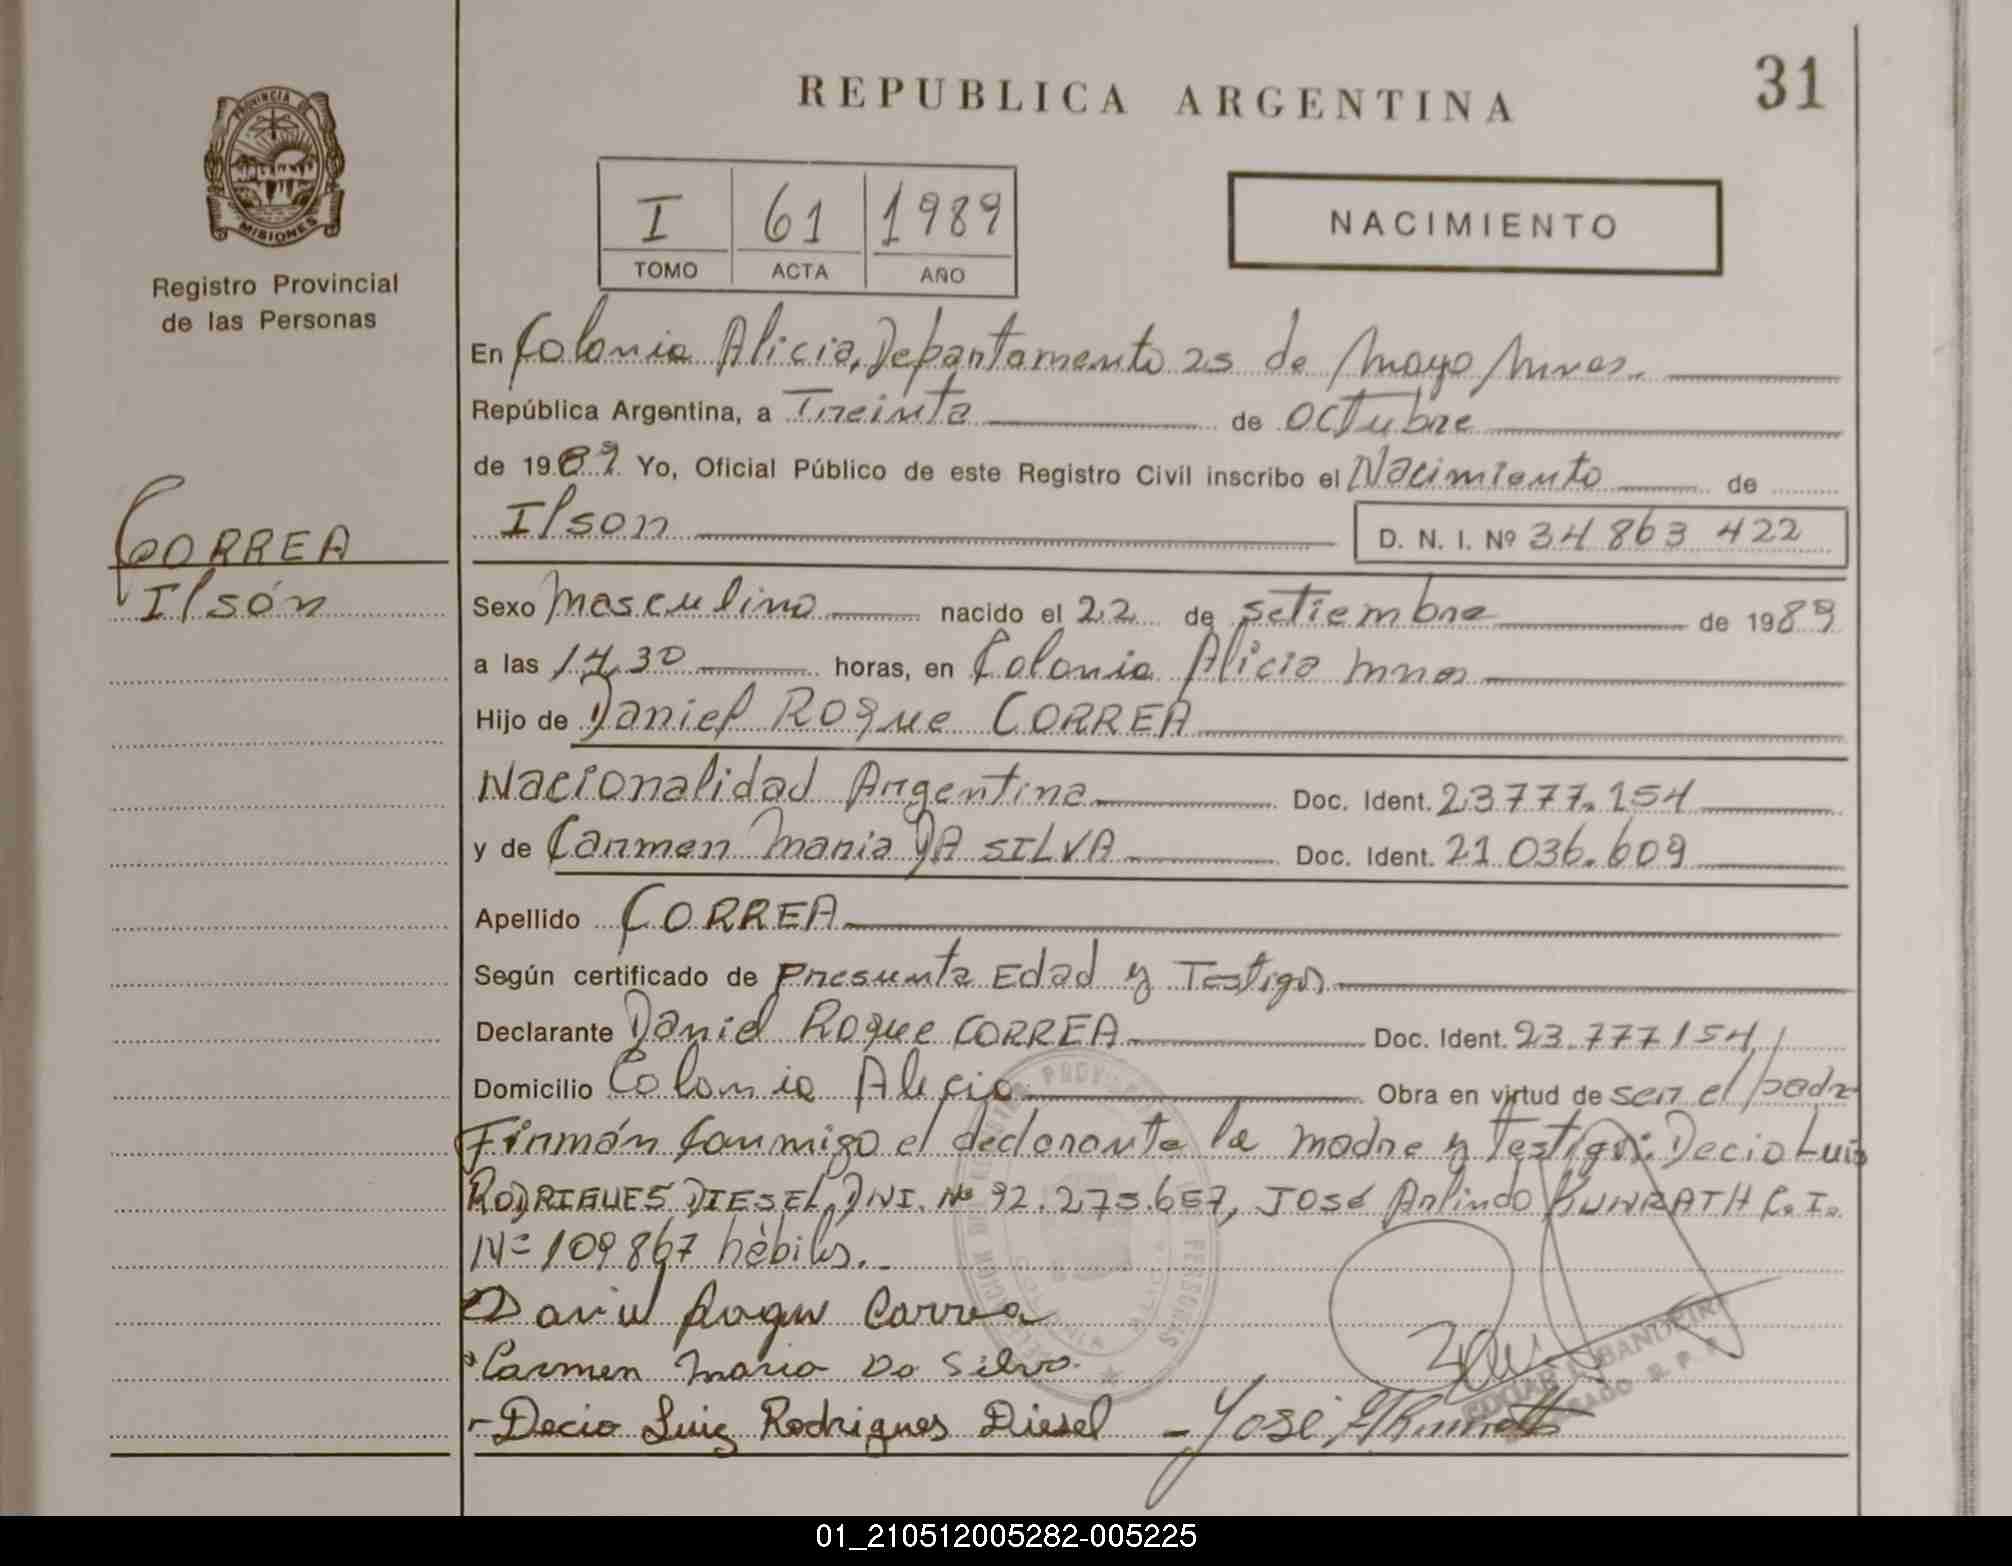 REPUBLICA ARGENTINA
31
PROVINCIA DE
MISIONES
Registro Provincial
de las Personas
I 61 1989
TOMO ACTA AÑO
NACIMIENTO
En Colonia Alicia, Departamento 25 de Mayo Mnes.
República Argentina, a Treinta de octubre
de 1989 Yo, Oficial Público de este Registro Civil inscribo el Nacimiento de
Ilson
D. N. I. Nº 34 863 422
CORREA
Ilsón
Sexo Masculino nacido el 22 de setiembre de 1989
a las 14,30 horas, en Colonia Alicia Mnes
Hijo de Daniel Roque CORREA
Nacionalidad Argentina Doc. Ident. 23777.154
y de Carmen Maria DA SILVA Doc. Ident. 21 036.609
Apellido CORREA
Según certificado de Presunta Edad y Testigos
Declarante Daniel Roque CORREA Doc. Ident. 23.777154
Domicilio Colonia Alicia Obra en virtud de ser el padre
Firmán Conmigo el declarante la madre y Testigos: Decio Luis
RODRIGUES DIESEL, DNI. Nº 92.275.657, JOSÉ Arlindo KUNRATH C.I.
Nº 109867 hábiles.
Daniel Roque Correa
Carmen Maria Da Silva
Decio Luiz Rodrigues Diesel - José
01_210512005282-005225